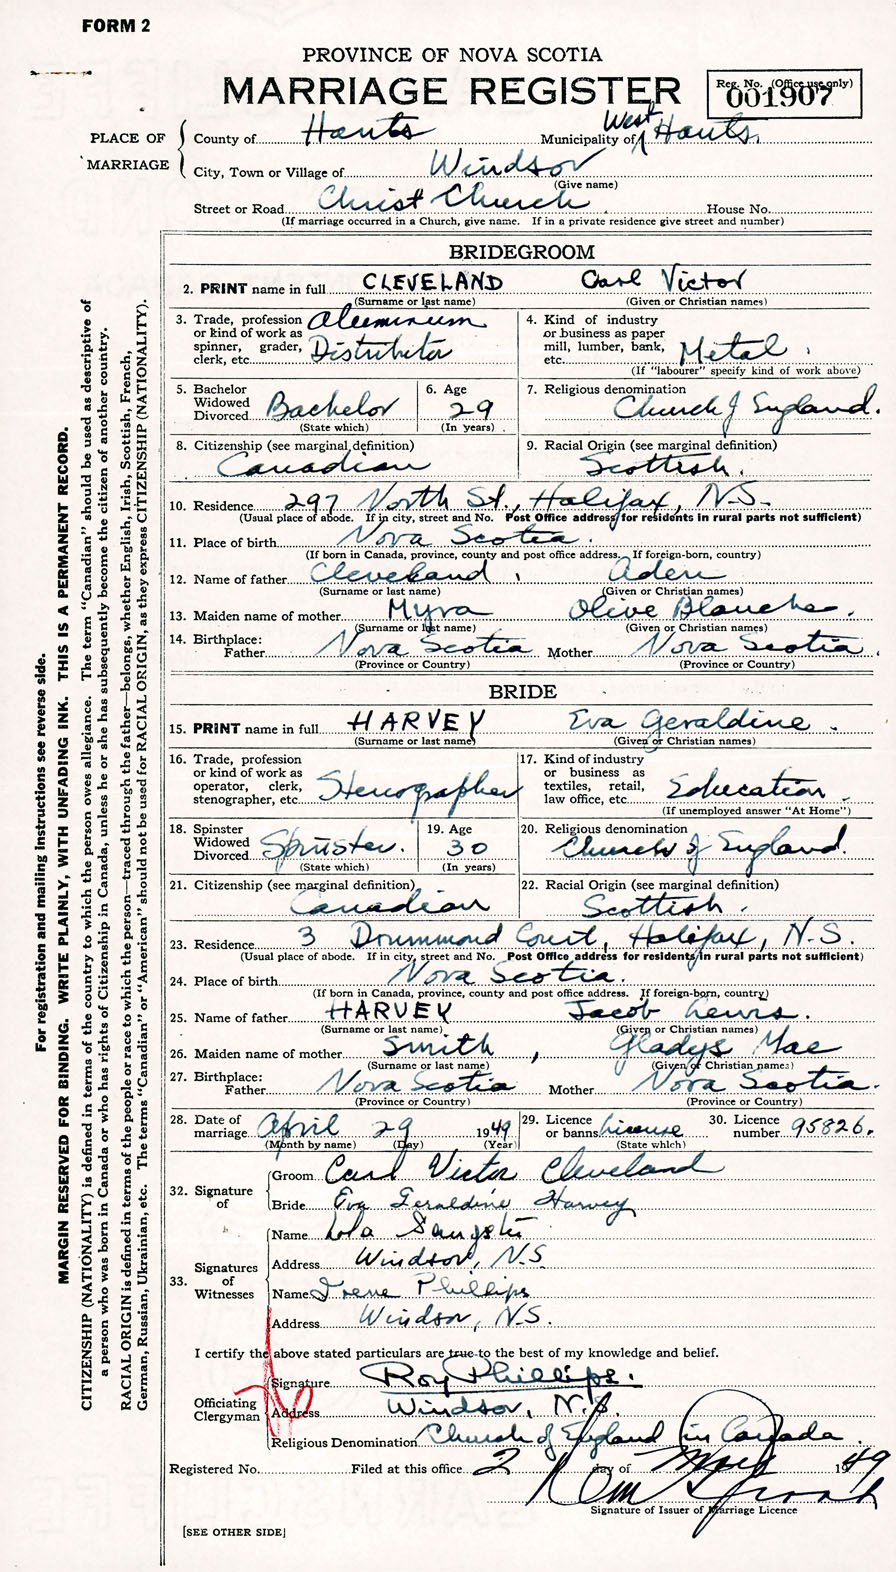 FORM 2
PROVINCE OF NOVA SCOTIA
MARRIAGE REGISTER
Reg. No. (Office use only)
001907
PLACE OF MARRIAGE
County of Hants Municipality of West Hants.
City, Town or Village of Windsor
(Give name)
Street or Road Christ Church. House No.
(If marriage occurred in a Church, give name. If in a private residence give street and number)
BRIDEGROOM
2. PRINT name in full CLEVELAND Carl Victor
(Surname or last name) (Given or Christian names)
3. Trade, profession or kind of work as spinner, grader, clerk, etc. Aluminum Distributor
4. Kind of industry or business as paper mill, lumber, bank, etc. Metal.
(If "labourer" specify kind of work above)
5. Bachelor Widowed Divorced Bachelor
(State which)
6. Age 29
(In years)
7. Religious denomination Church of England.
8. Citizenship (see marginal definition) Canadian
9. Racial Origin (see marginal definition) Scottish.
10. Residence 297 North St., Halifax, N.S.
(Usual place of abode. If in city, street and No. Post Office address for residents in rural parts not sufficient)
11. Place of birth Nova Scotia.
(If born in Canada, province, county and post office address. If foreign-born, country)
12. Name of father Cleveland, Aden
(Surname or last name) (Given or Christian names)
13. Maiden name of mother Myra Olive Blanche.
(Surname or last name) (Given or Christian names)
14. Birthplace: Father Nova Scotia Mother Nova Scotia.
(Province or Country) (Province or Country)
BRIDE
15. PRINT name in full HARVEY Eva Geraldine.
(Surname or last name) (Given or Christian names)
16. Trade, profession or kind of work as operator, clerk, stenographer, etc. Stenographer
17. Kind of industry or business as textiles, retail, law office, etc. Education.
(If unemployed answer "At Home")
18. Spinster Widowed Divorced Spinster.
(State which)
19. Age 30
(In years)
20. Religious denomination Church of England.
21. Citizenship (see marginal definition) Canadian
22. Racial Origin (see marginal definition) Scottish.
23. Residence 3 Drummond Court, Halifax, N.S.
(Usual place of abode. If in city, street and No. Post Office address for residents in rural parts not sufficient)
24. Place of birth Nova Scotia.
(If born in Canada, province, county and post office address. If foreign-born, country)
25. Name of father HARVEY Jacob Lewis.
(Surname or last name) (Given or Christian names)
26. Maiden name of mother Smith, Gladys Mae
(Surname or last name) (Given or Christian names)
27. Birthplace: Father Nova Scotia Mother Nova Scotia.
(Province or Country) (Province or Country)
28. Date of marriage April 29 1949
(Month by name) (Day) (Year)
29. Licence or banns license
(State which)
30. Licence number 95826.
32. Signature of
Groom Carl Victor Cleveland
Bride Eva Geraldine Harvey
33. Signatures of Witnesses
Name Lola Sangster
Address Windsor, N.S.
Name Irene Phillips
Address Windsor, N.S.
I certify the above stated particulars are true to the best of my knowledge and belief.
Officiating Clergyman
Signature Roy Phillips.
Address Windsor, N.S.
Religious Denomination Church of England in Canada.
Registered No. Filed at this office 2 day of May 1949
Signature of Issuer of Marriage Licence
[SEE OTHER SIDE]
For registration and mailing instructions see reverse side.
MARGIN RESERVED FOR BINDING. WRITE PLAINLY, WITH UNFADING INK. THIS IS A PERMANENT RECORD.
CITIZENSHIP (NATIONALITY) is defined in terms of the country to which the person owes allegiance. The term "Canadian" should be used as descriptive of
a person who was born in Canada or who has rights of Citizenship in Canada, unless he or she has subsequently become the citizen of another country.
RACIAL ORIGIN is defined in terms of the people or race to which the person—traced through the father—belongs, whether English, Irish, Scottish, French,
German, Russian, Ukrainian, etc. The terms "Canadian" or "American" should not be used for RACIAL ORIGIN, as they express CITIZENSHIP (NATIONALITY).